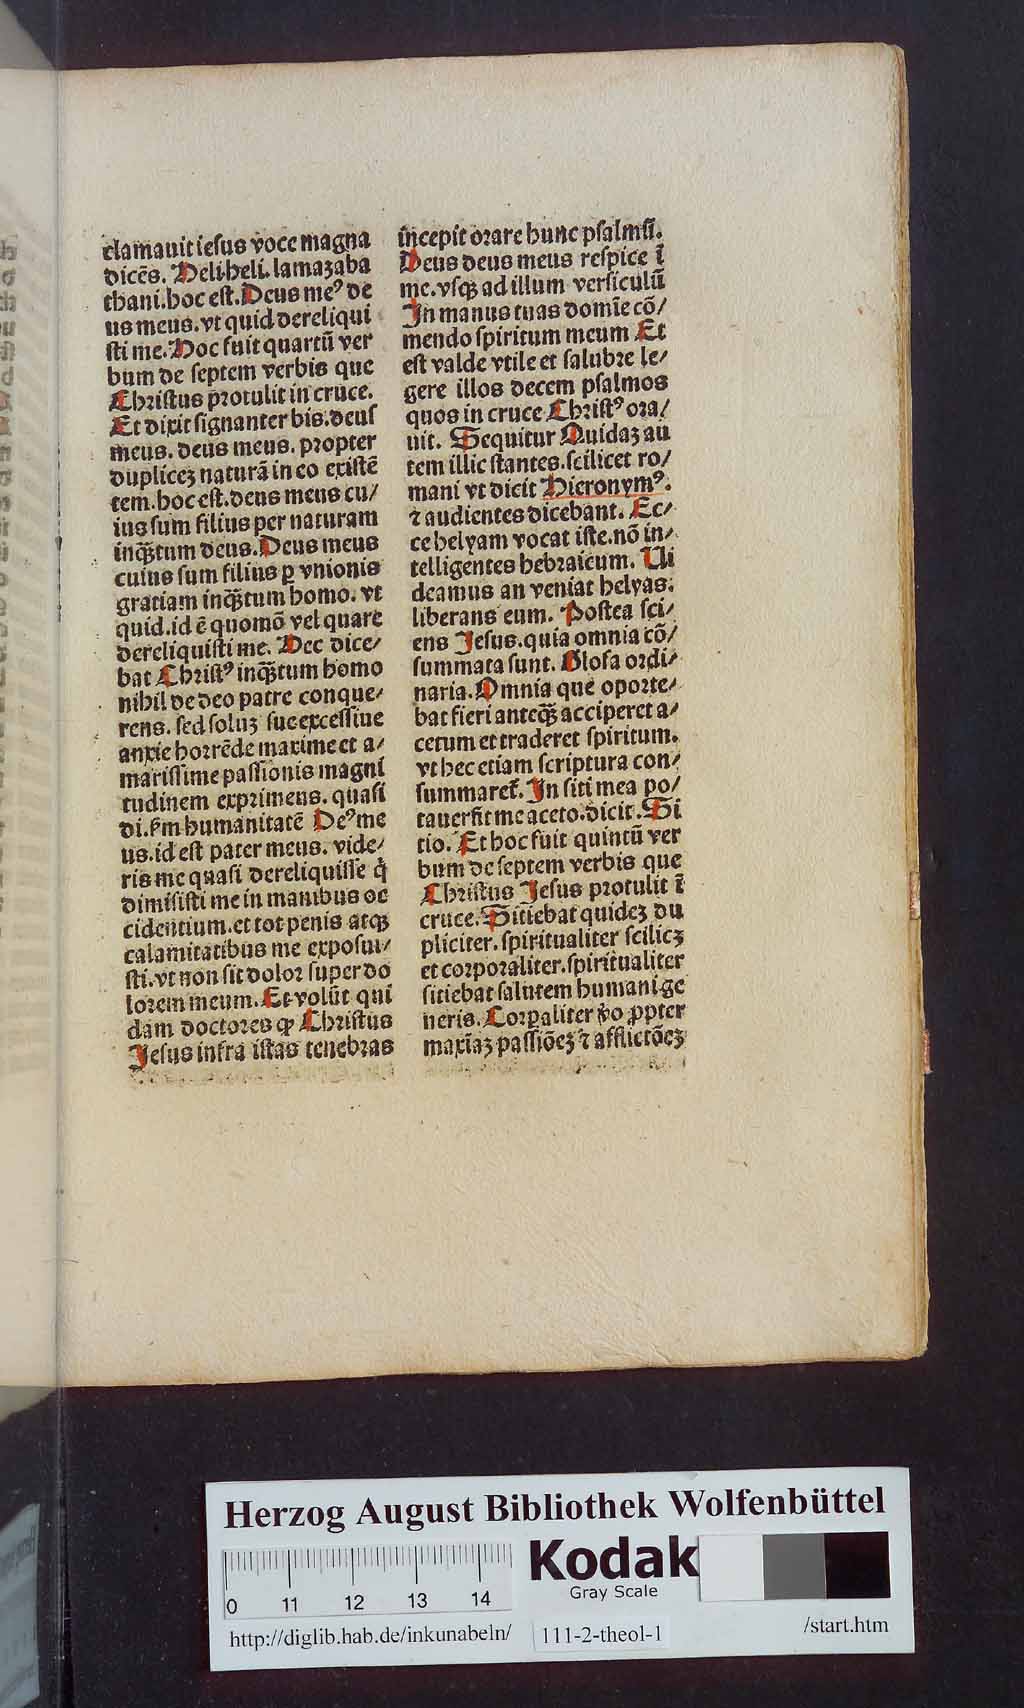 clamauit iesus voce magna
dicēs. Heli heli. lamazaba
thani. hoc est. Deus meꝰ de
us meus. vt quid dereliqui
sti me. Hoc fuit quartū ver
bum de septem verbis que
Christus protulit in cruce.
Et dixit signanter bis. deus
meus. deus meus. propter
duplicez naturā in eo existē
tem. hoc est. deus meus cu/
ius sum filius per naturam
inq̄tum deus. Deus meus
cuius sum filius ꝑ vnionis
gratiam inq̄tum homo. vt
quid. id ē quomō vel quare
dereliquisti me. Hec dice/
bat Christꝰ inq̄tum homo
nihil de deo patre conque/
rens. sed soluz sue excessiue
anxie horrēde maxime et a/
marissime passionis magni
tudinem exprimens. quasi
di. ẜm humanitatē Deꝰ me
us. id est pater meus. vide/
ris me quasi dereliquisse q̇
dimisisti me in manibus oc
cidentium. et tot penis atqꝫ
calamitatibus me exposui/
sti. vt non sit dolor super do
lorem meum. Et volūt qui
dam doctores ꝙ Christus
Jesus infra istas tenebras
incepit orare hunc psalmū.
Deus deus meus respice ī
me. vsqꝫ ad illum versiculū
In manus tuas domīe cō/
mendo spiritum meum Et
est valde vtile et salubre le/
gere illos decem psalmos
quos in cruce Christꝰ ora/
uit. Sequitur Quidaz au
tem illic stantes. scilicet ro/
mani vt dicit Hieronymꝰ.
⁊ audientes dicebant. Ec/
ce helyam vocat iste. nō in/
telligentes hebraicum. Ui
deamus an veniat helyas.
liberans eum. Postea sci/
ens Jesus. quia omnia cō/
summata sunt. Glosa ordi/
naria. Omnia que oporte/
bat fieri anteq̄ꝫ acciperet a/
cetum et traderet spiritum.
vt hec etiam scriptura con/
summaret̄. In siti mea po/
tauerūt me aceto. dicit. Si
tio. Et hoc fuit quintū ver
bum de septem verbis que
Christus Jesus protulit ī
cruce. Sitiebat quidez du
pliciter. spiritualiter scilicꝫ
et corporaliter. spiritualiter
sitiebat salutem humani ge
neris. Corpaliter v̊o ꝓpter
maxīaz passiōez ⁊ afflictōez
Herzog August Bibliothek Wolfenbüttel
0 11 12 13 14
Kodak
Gray Scale
http://diglib.hab.de/inkunabeln/ 111-2-theol-1 /start.htm